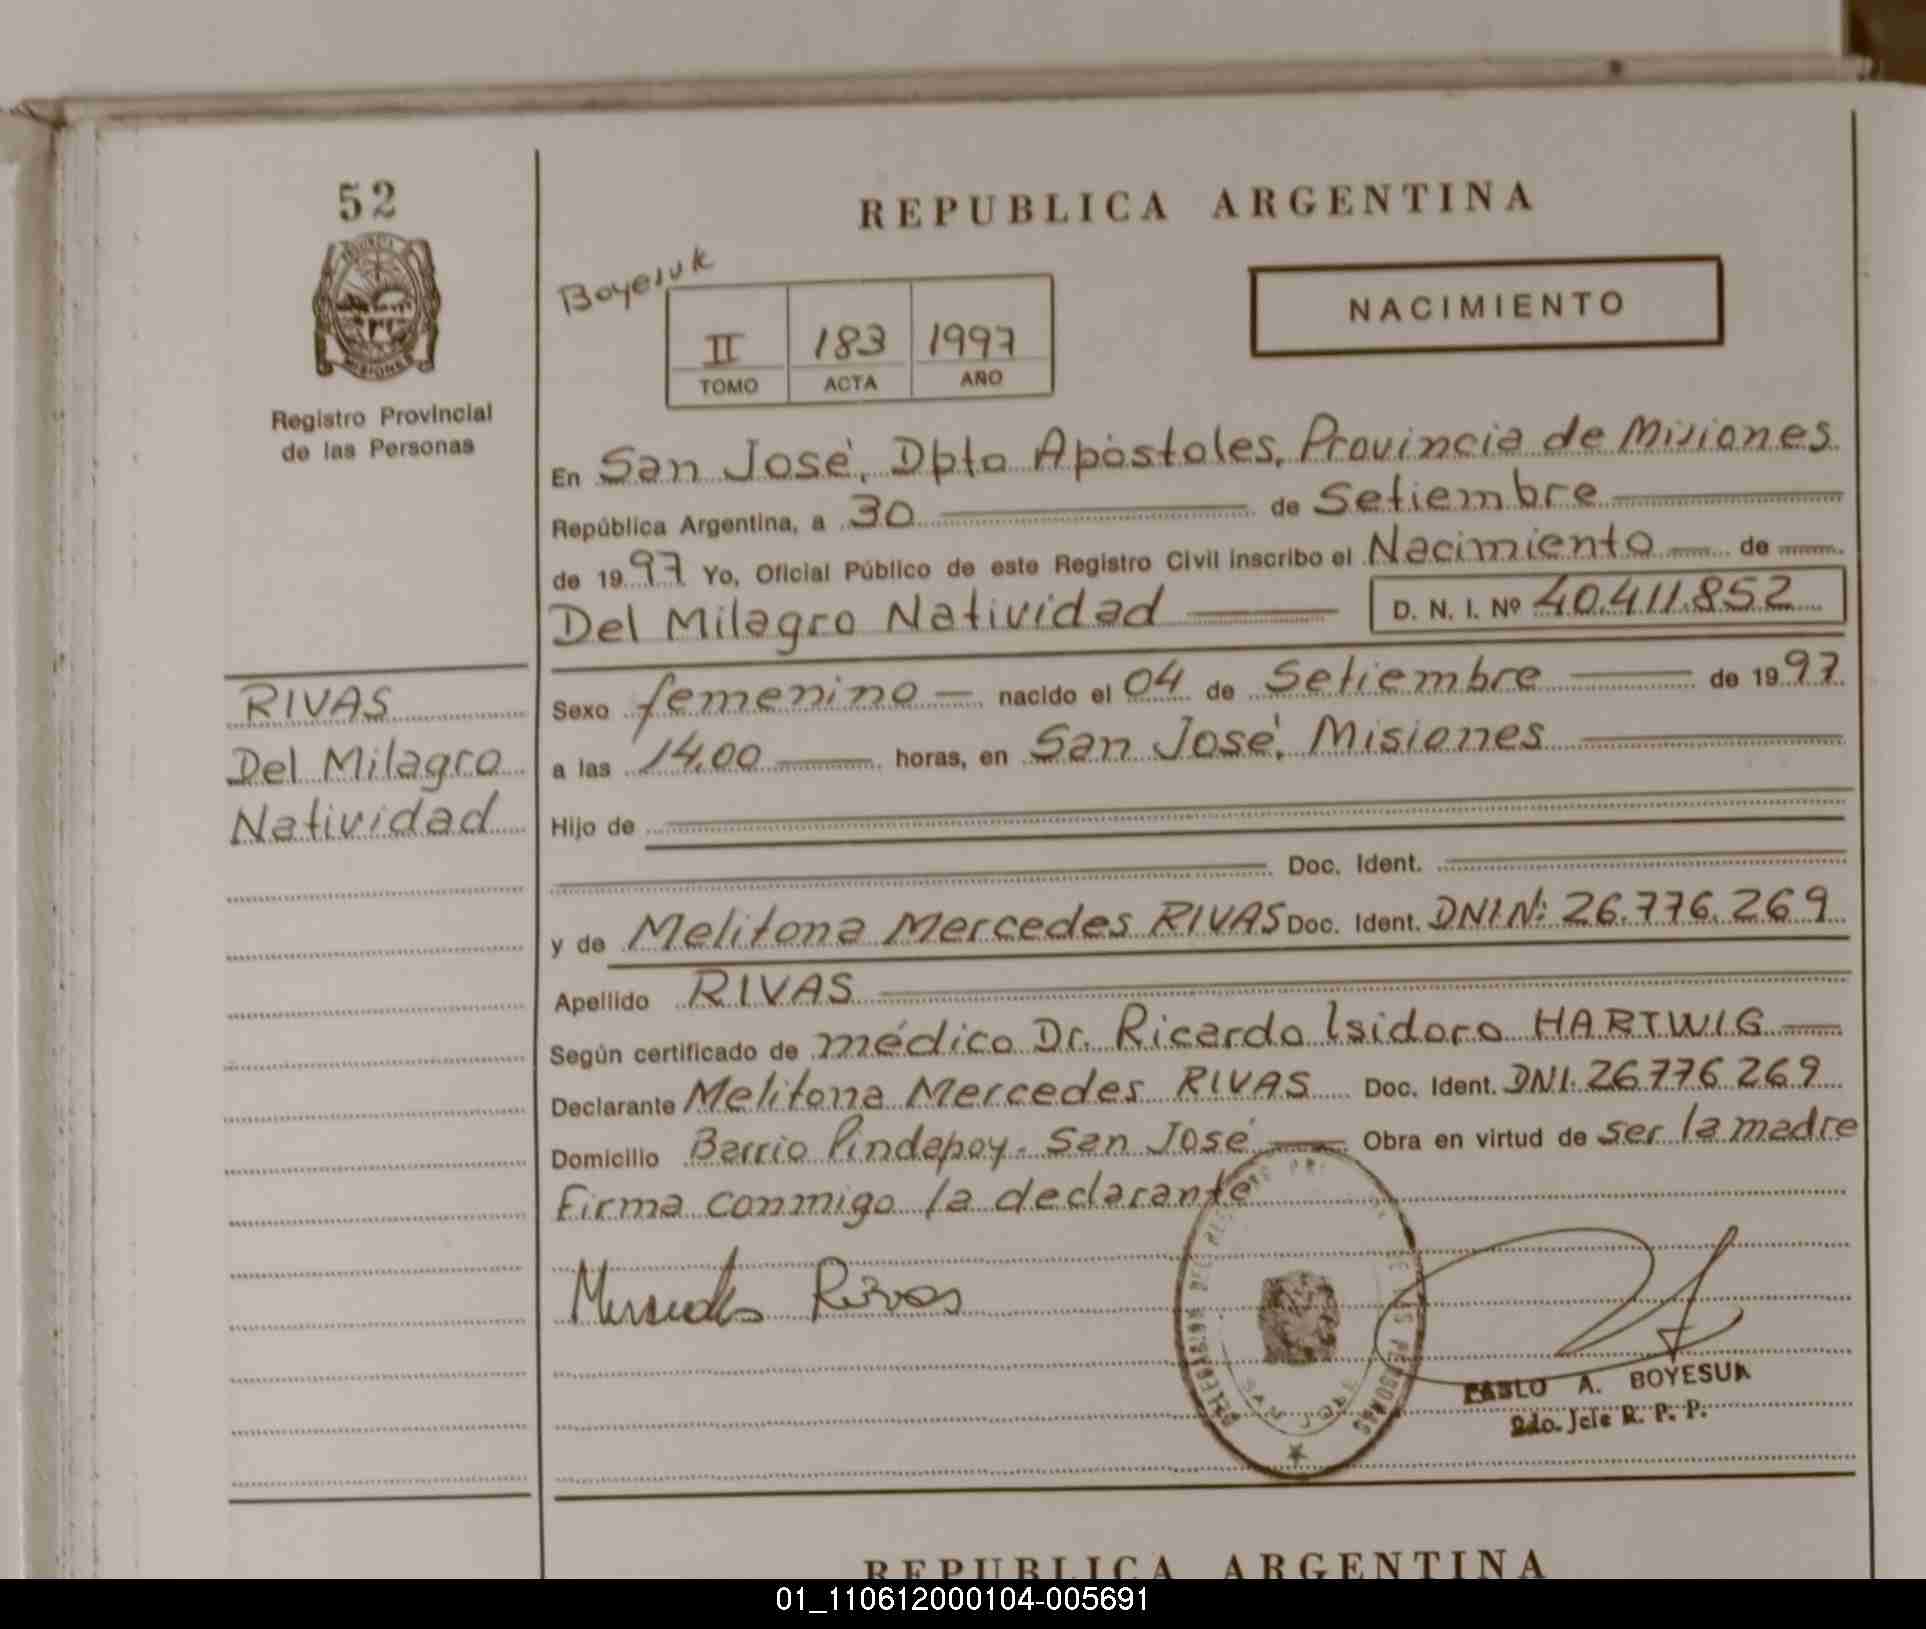 52
Registro Provincial
de las Personas
RIVAS
Del Milagro
Natividad
REPUBLICA ARGENTINA
Boyesuk
NACIMIENTO
II 183 1997
TOMO ACTA AÑO
En San José, Dpto Apóstoles, Provincia de Misiones
República Argentina, a 30 de Setiembre
de 1997 Yo, Oficial Público de este Registro Civil inscribo el Nacimiento de
Del Milagro Natividad D. N. I. Nº 40.411.852
Sexo femenino nacido el 04 de Setiembre de 1997
a las 14,00 horas, en San José, Misiones
Hijo de
Doc. Ident.
y de Melitona Mercedes RIVAS Doc. Ident. DNI Nº: 26.776.269
Apellido RIVAS
Según certificado de médico Dr. Ricardo Isidoro HARTWIG
Declarante Melitona Mercedes RIVAS Doc. Ident. DNI. 26776269
Domicilio Barrio Pindapoy - San José Obra en virtud de ser la madre
Firma conmigo la declarante
Mercedes Rivas
SAN JOSE
PABLO A. BOYESUK
2do. Jefe R. P. P.
REPUBLICA ARGENTINA
01_110612000104-005691